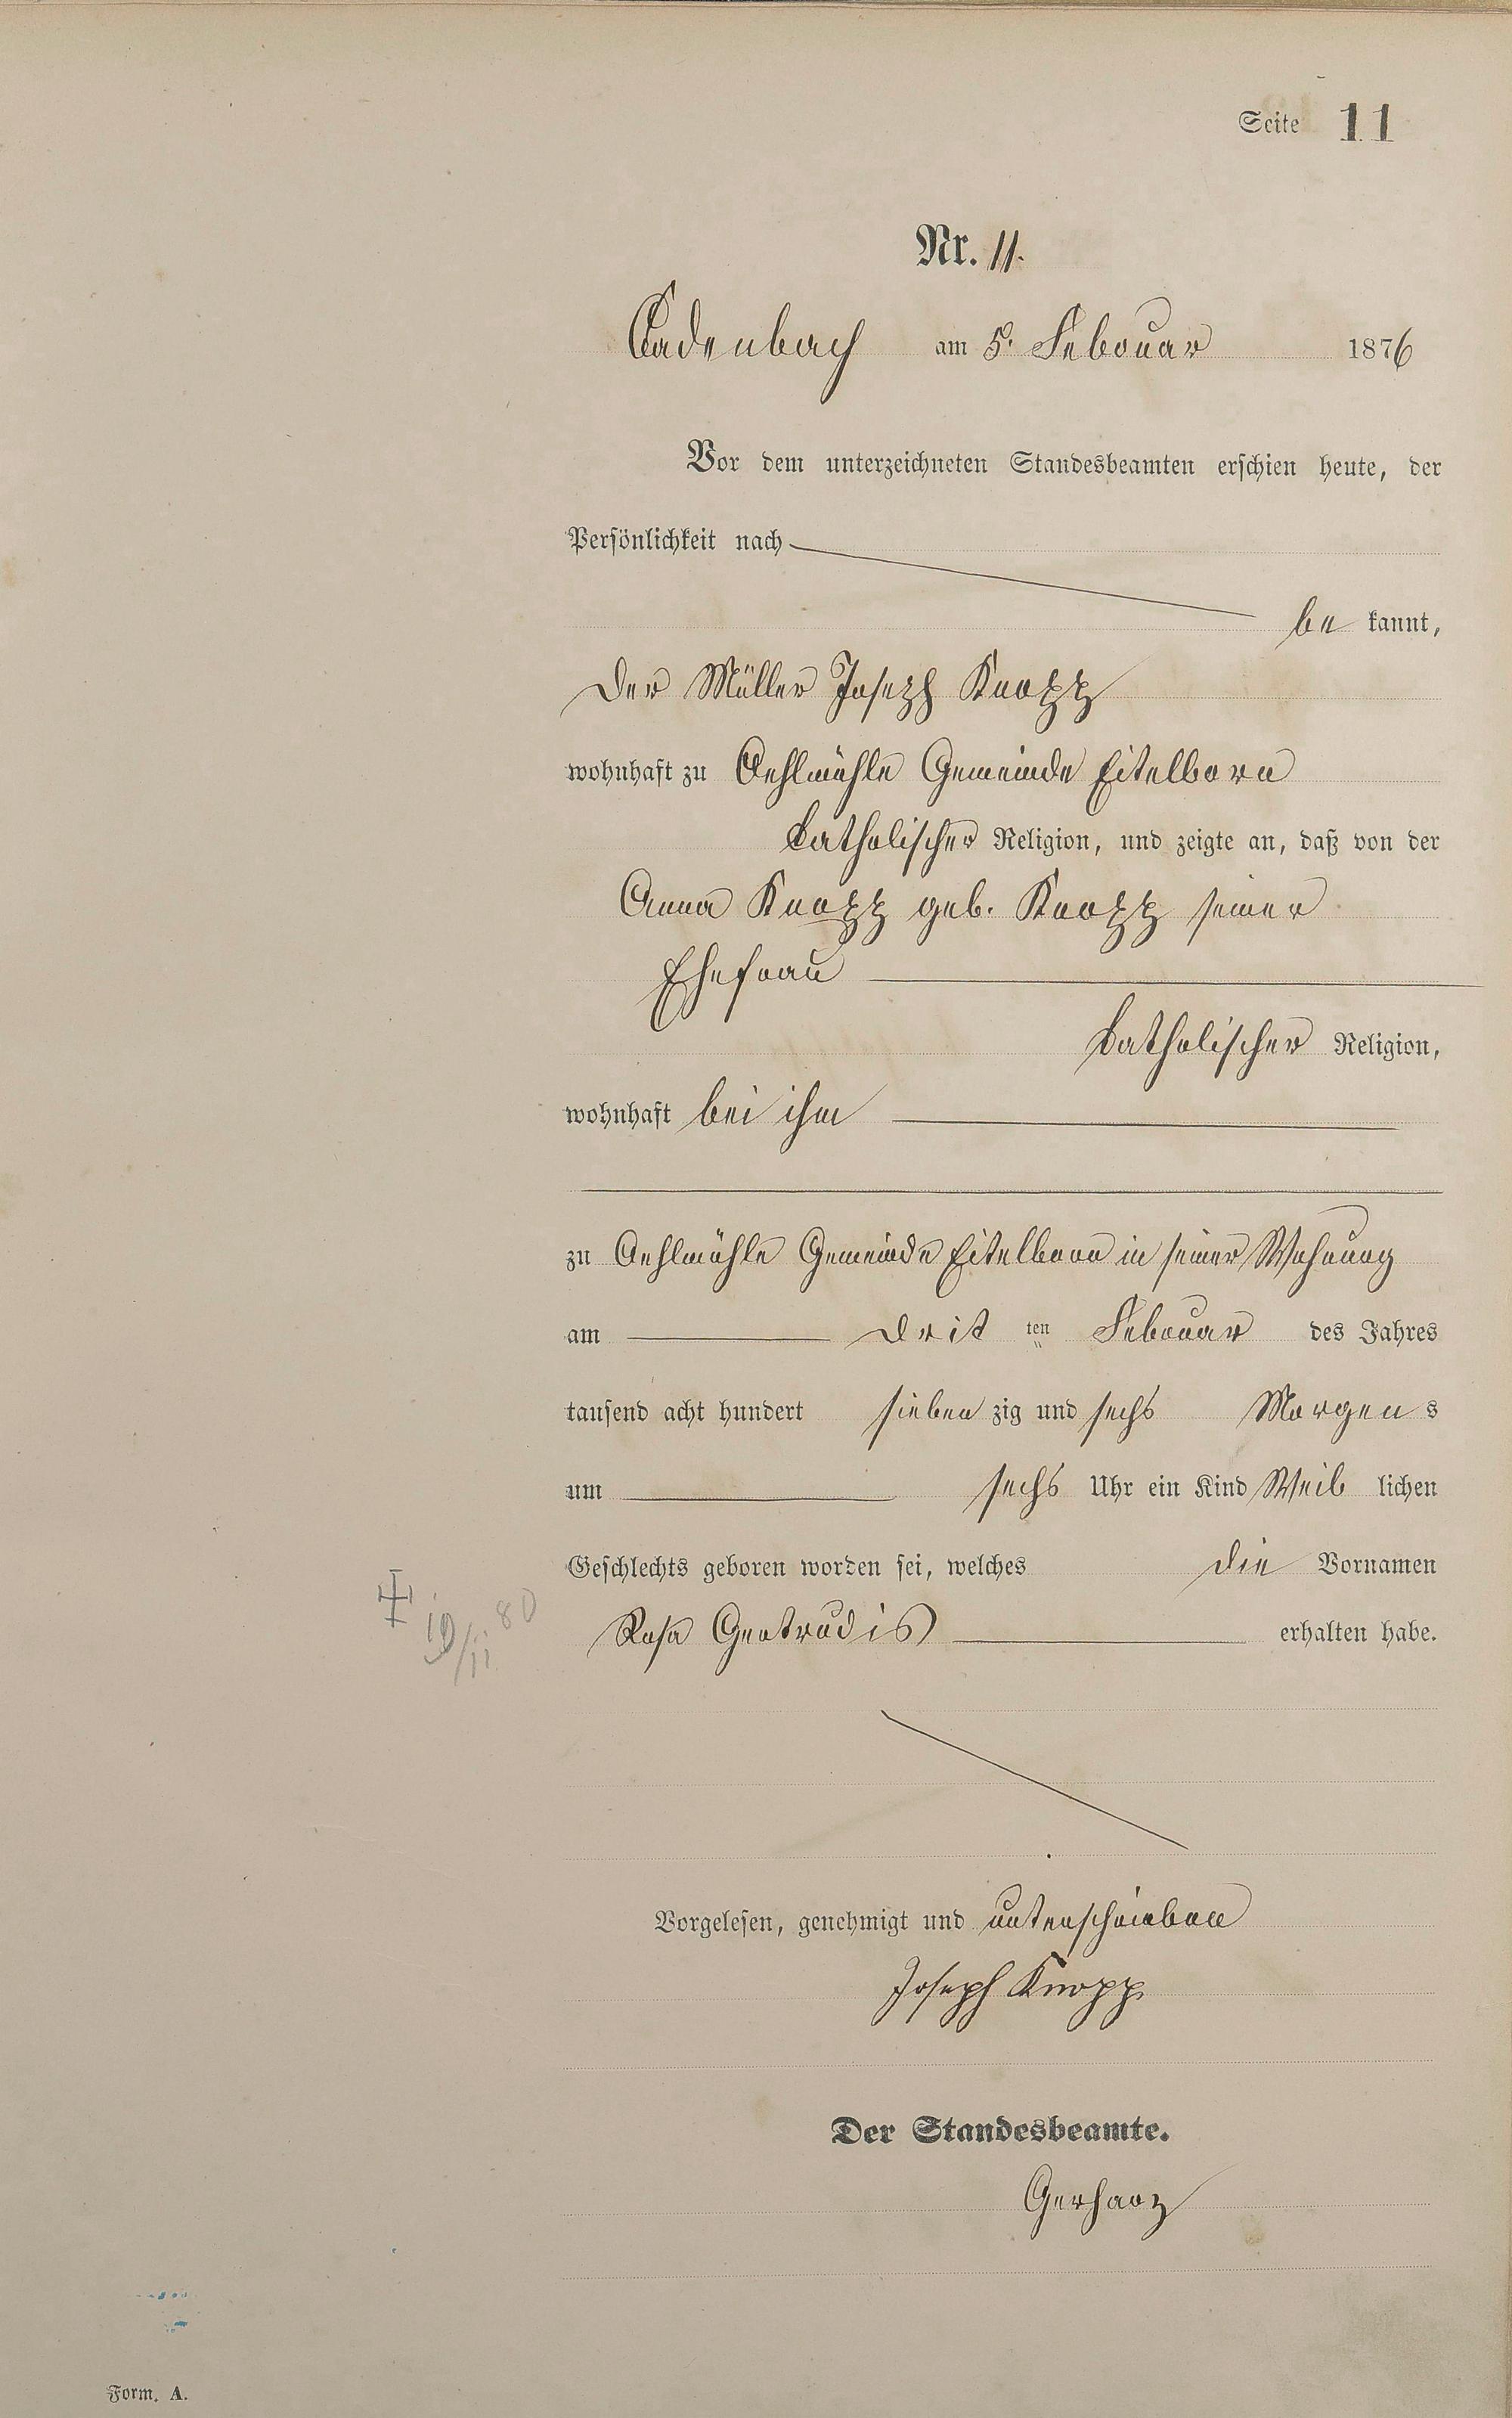 Seite 11
Nr. 11.
Cadenbach am 5. Februar 1876
Vor dem unterzeichneten Standesbeamten erschien heute, der
Persönlichkeit nach
be kannt,
der Müller Joseph Knopp
wohnhaft zu Oehlmühle Gemeinde Eitelborn
katholischer Religion, und zeigte an, daß von der
Anna Knopp geb. Knopp seiner
Ehefrau
katholischer Religion,
wohnhaft bei ihm
zu Oehlmühle Gemeinde Eitelborn in seiner Wohnung
am drit ten Februar des Jahres
tausend acht hundert sieben zig und sechs Morgen s
um sechs Uhr ein Kind Weib lichen
Geschlechts geboren worden sei, welches die Vornamen
Rosa Gertrudis erhalten habe.
80
Vorgelesen, genehmigt und unterschrieben
Joseph Knopp
Der Standesbeamte.
Gerharz
Form. A.